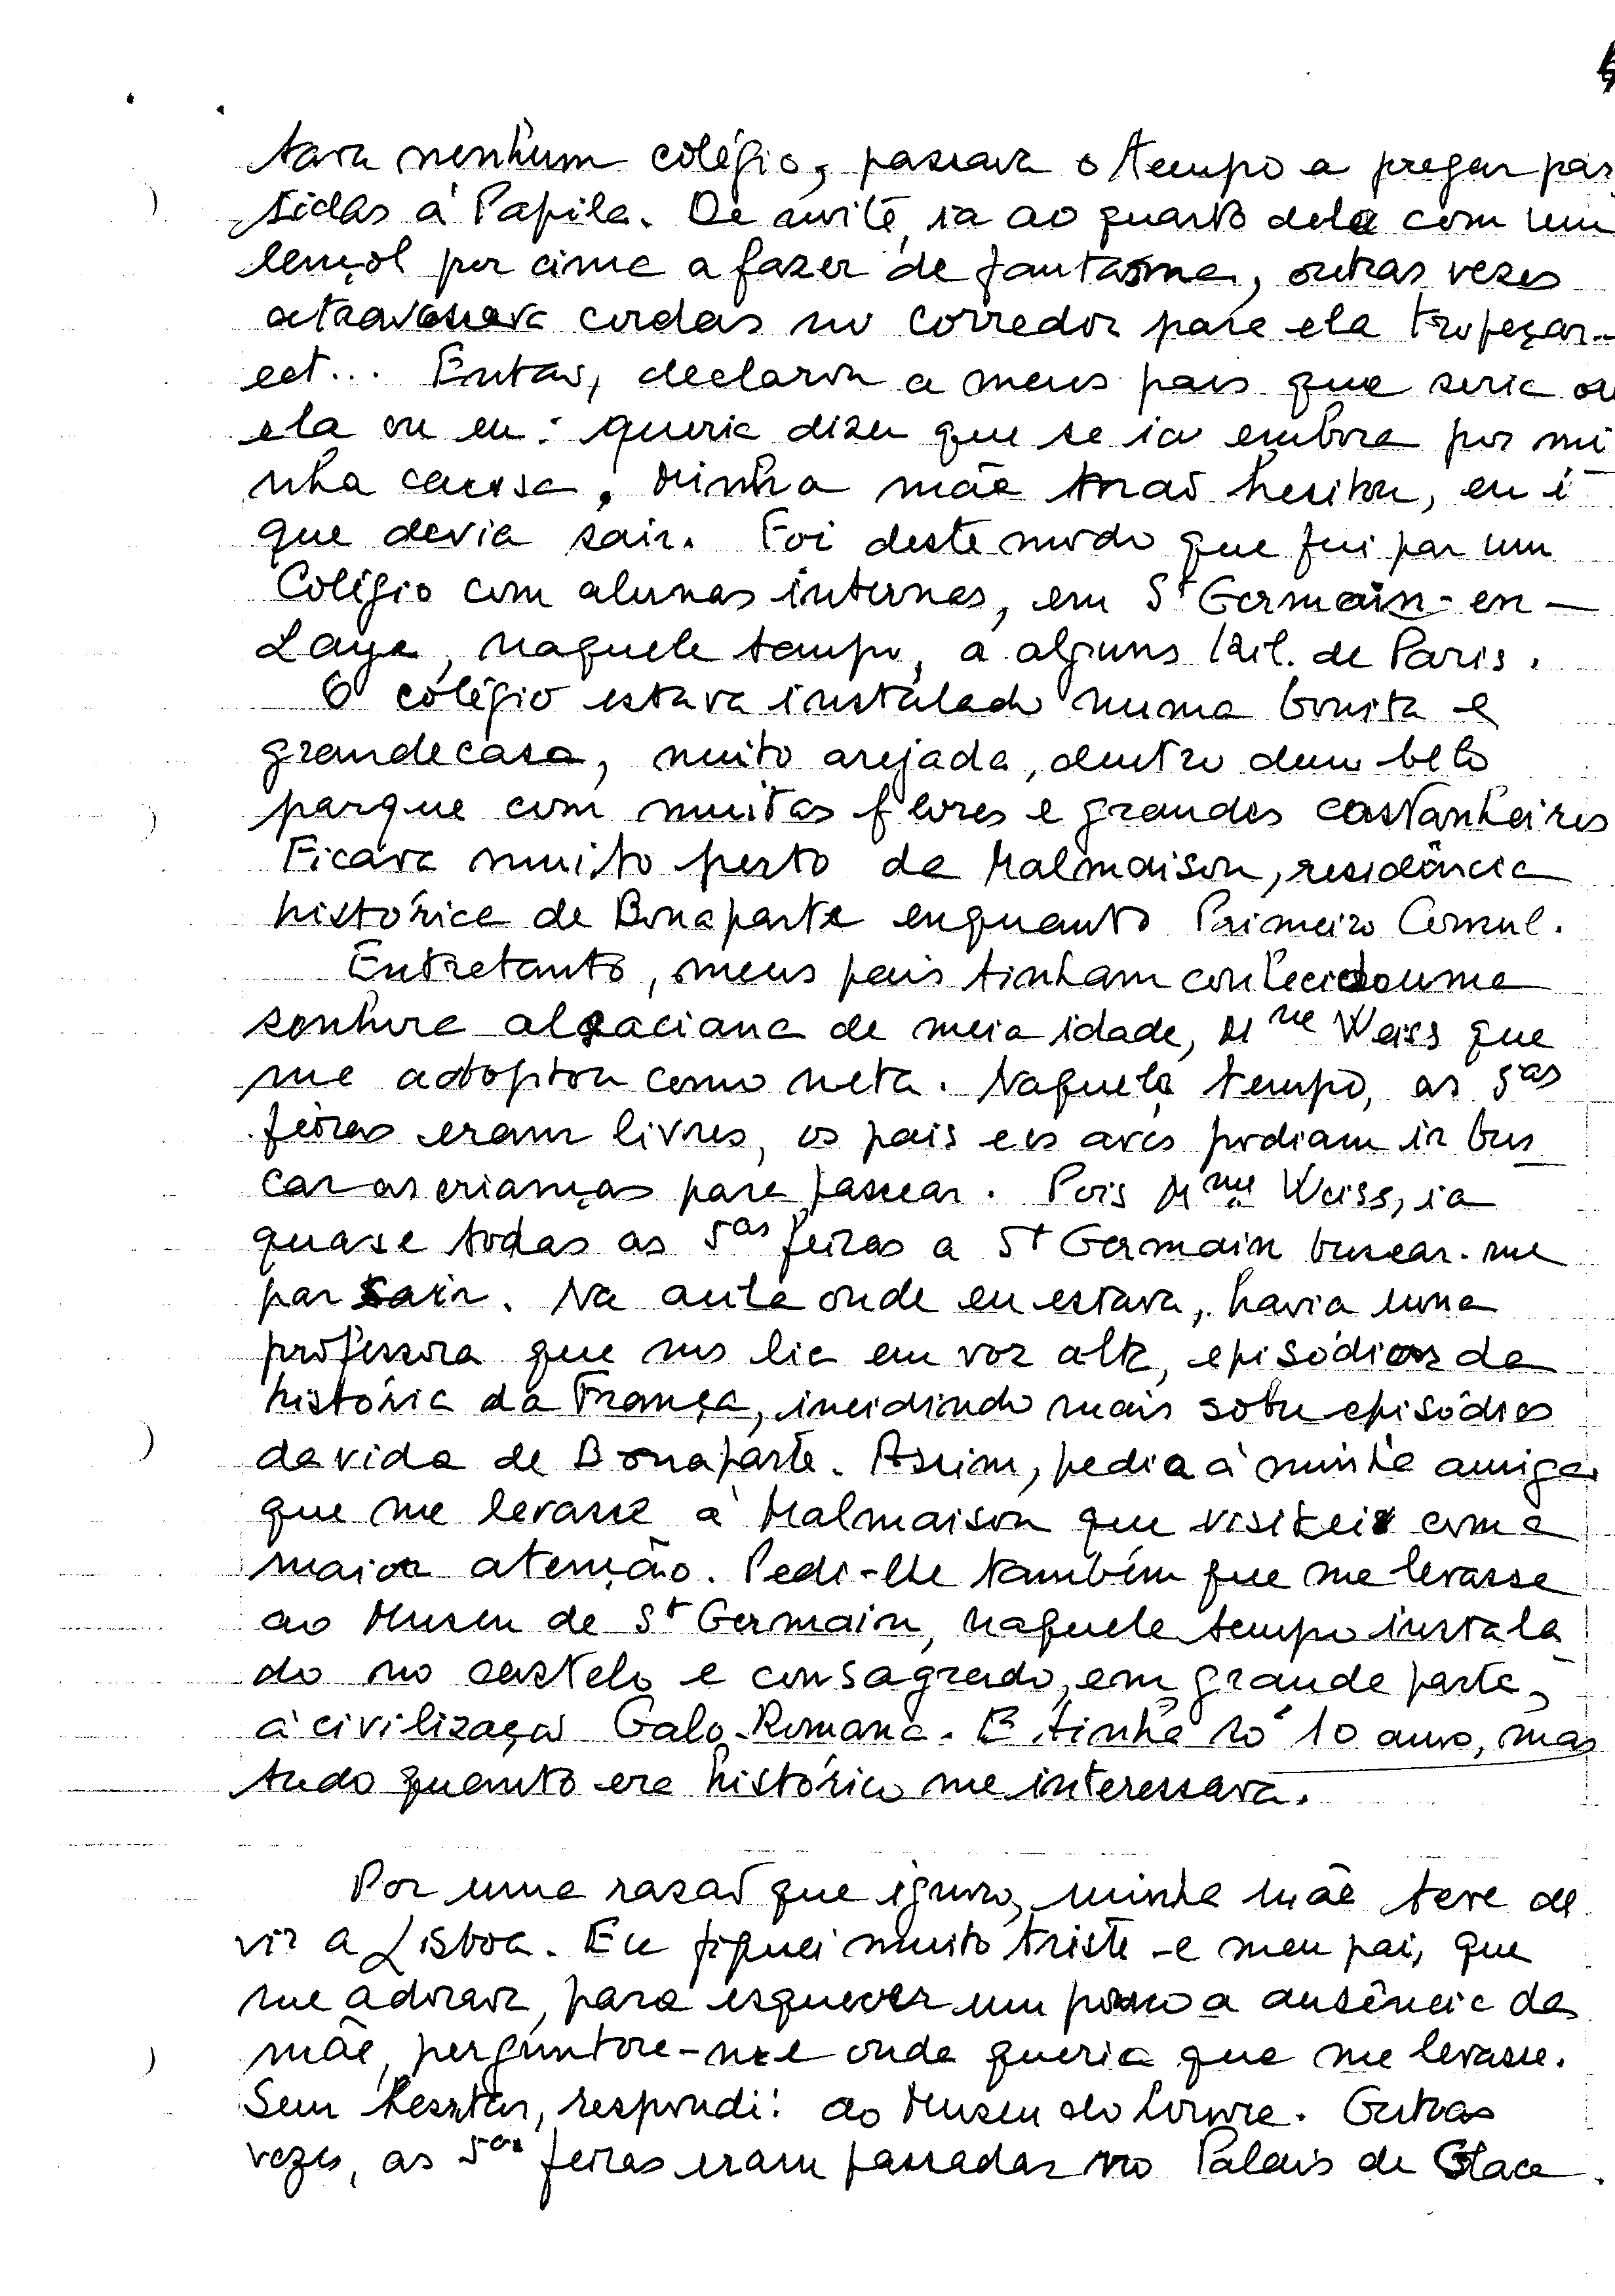 tava nenhum colégio, passava o tempo a pregar par
tidas à Papila. De noite, ia ao quarto dela com um
lençol por cima a fazer de fantasma, outras vezes
atravessava cordas no corredor para ela tropeçar
ect... Então, declarou a meus pais que seria ou
ela ou eu: queria dizer que se ia embora por mi
nha causa. Minha mãe não hesitou, eu é
que devia sair. Foi deste modo que fui par um
Colégio com alunas internas, em St Germain-en-
Laye, naquele tempo, a alguns Kil. de Paris.
O colégio estava instalado numa bonita e
grande casa, muito arejada, dentro dum belo
parque com muitas flores e grandes castanheiros
Ficava muito perto da Malmaison, residência
histórica de Bonaparte enquanto Primeiro Consul.
Entretanto, meus pais tinham conhecido uma
senhora alsaciana de meia idade, Mme Weiss que
me adoptou como neta. Naquele tempo, as 5as
feiras eram livres, os pais e os avós podiam ir bus
car as crianças para passear. Pois Mme Weiss, ia
quase todas as 5as feiras a St Germain buscar-me
par sair. Na aula onde eu estava, havia uma
professora que nos lia em voz alta, episódios da
história da França, incidindo mais sobre episódios
da vida de Bonaparte. Assim, pedia à minha amiga
que me levasse à Malmaison que visitei com a
maior atenção. Pedi-lhe também que me levasse
ao Museu de St Germain, naquele tempo instala
do no castelo e consagrado, em grande parte,
à civilização Galo-Romana. E tinha só 10 anos, mas
tudo quanto era histórico me interessava.
Por uma razão que ignoro, minha mãe teve de
vir a Lisboa. Eu fiquei muito triste e meu pai, que
me adorava, para esquecer um pouco a ausência da
mãe, perguntou-me onde queria que me levasse.
Sem hesitar, respondi: ao Museu do Louvre. Outras
vezes, as 5as feiras eram passadas no Palais de Glace.